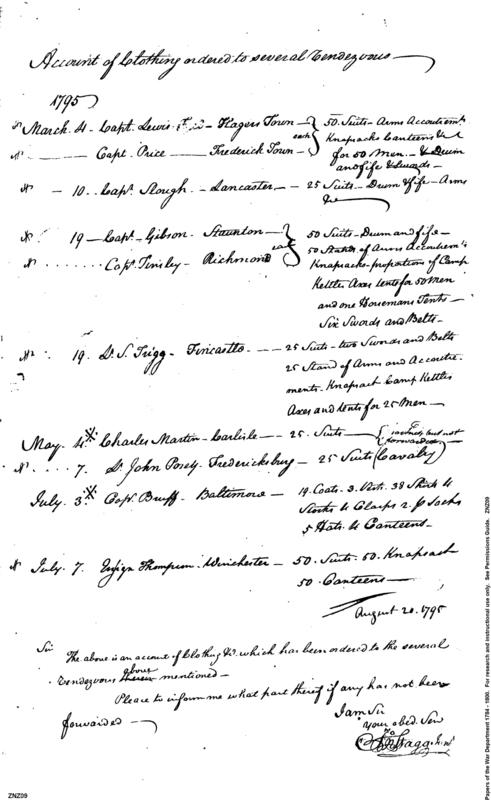 Account of Clothing ordered to several Rendezvous
1795
March 4 - Capt. Lewis - Hagers Town - 50 Suits - Arms Accoutremts
Capt. Price - Frederick Town - each Knapsacks Canteens &c
for 50 Men - & Drum
and fife & Swords -
10 - Capt. Slough - Lancaster - 25 Suits - Drum & fife - Arms
&c
19 - Capt. Gibson - Staunton - 50 Suits - Drum and fife -
Capt. Tinsley - Richmond each 50 Stands of Arms Accoutremts
Knapsacks - proportion of Camp
Kettles Axes tents for 50 Men
and one Horsemans Tent -
Six Swords and Belts -
19. Lt. S. Trigg - Fincastle - 25 Suits - two Swords and Belts
25 Stand of Arms and Accoutre-
ments - Knapsack Camp Kettles
Axes and tents for 25 Men -
May 4 Charles Martin - Carlisle - 25 Suits - but not
forwarded
7. Lt. John Posey - Fredericksburg - 25 Suits (Cavalry)
July 3 Capt. Bruff - Baltimore - 19 Coats - 3 Vests - 38 Shirts 4
Stocks 4 Clasps 2 p Socks
5 Hats 4 Canteens -
July 7. Ensign Thompson - Winchester - 50 Suits - 50 Knapsack
50 Canteens -
August 20. 1795
Sir
The above is an account of Clothing &c. which has been ordered to the several
Rendezvous above mentioned -
Please to inform me what part thereof if any has not been
forwarded -
I am Sir
Your obed. Ser
Stagg Junr
ZNZ09
Papers of the War Department 1784 - 1800. For research and instructional use only. See Permissions Guide. ZNZ09